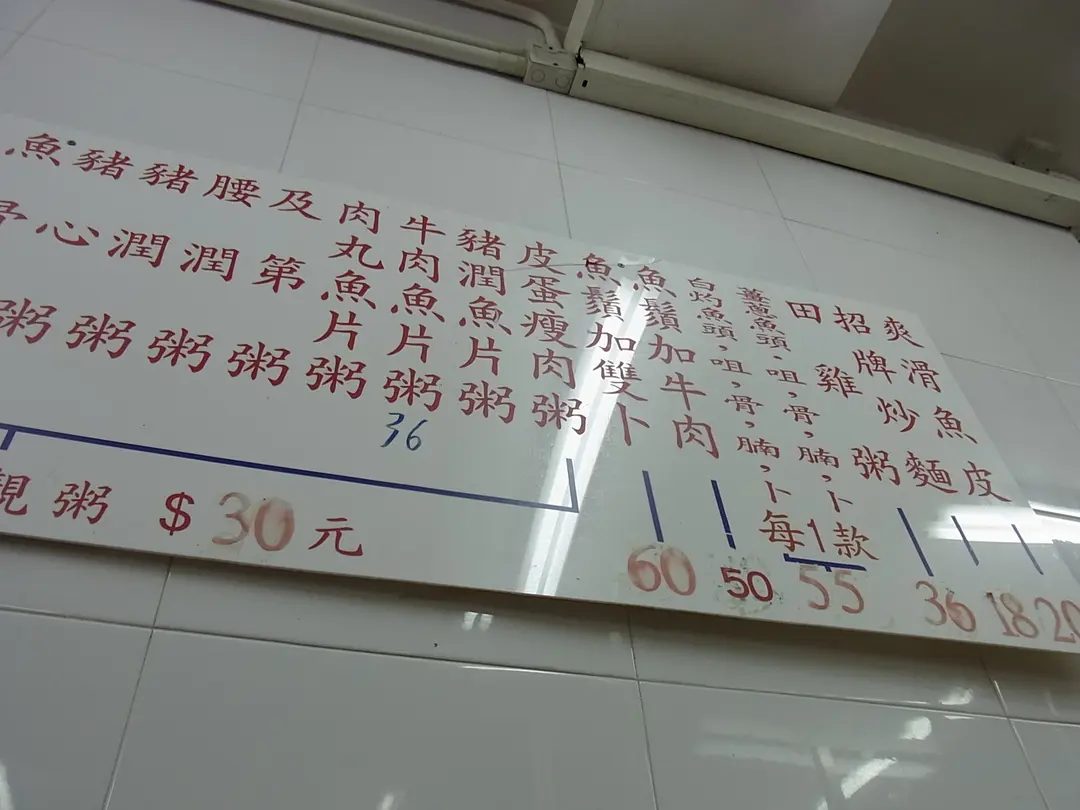 爽滑魚皮
20
招牌炒麵
18
田雞粥
36
薑蔥魚頭,咀,骨,腩,卜
白灼魚頭,咀,骨,腩,卜
每1款
55
魚鬚加牛肉
50
魚鬚加雙卜
60
皮蛋瘦肉粥
豬潤魚片粥
牛肉魚片粥
36
肉丸魚片粥
及第粥
腰潤粥
豬潤粥
豬心粥
魚骨粥
靚粥 $30元